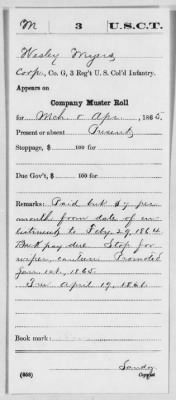 M 3 U.S.C.T.
Wesley Myers
Corp., Co. G, 3 Reg't U.S. Col'd Infantry.
Appears on
Company Muster Roll
for Mch & Apr, 1865.
Present or absent Present
Stoppage, $ 100 for
Due Gov't, $ 100 for
Remarks: Paid but $7 per
month from date of en
listment to Feby 29, 1864
Back pay due Stop for
wiper, canteen Promoted
Jan 1st, 1865.
April 19, 1861
Book mark:
(858)
Copyist